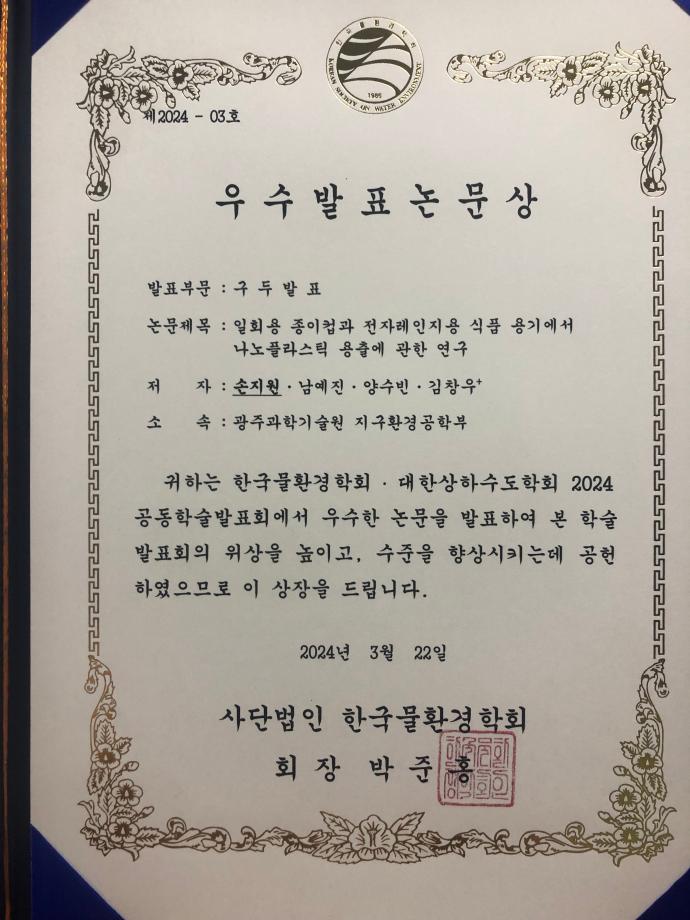 한국물환경학회
KOREAN SOCIETY ON WATER ENVIRONMENT
1985
제2024 - 03호
우수발표논문상
발표부문 : 구두발표
논문제목 : 일회용 종이컵과 전자레인지용 식품 용기에서
나노플라스틱 용출에 관한 연구
저 자 : 손지원 · 남예진 · 양수빈 · 김창우⁺
소 속 : 광주과학기술원 지구환경공학부
귀하는 한국물환경학회 · 대한상하수도학회 2024
공동학술발표회에서 우수한 논문을 발표하여 본 학술
발표회의 위상을 높이고, 수준을 향상시키는데 공헌
하였으므로 이 상장을 드립니다.
2024년 3월 22일
사단법인 한국물환경학회
회장 박준홍